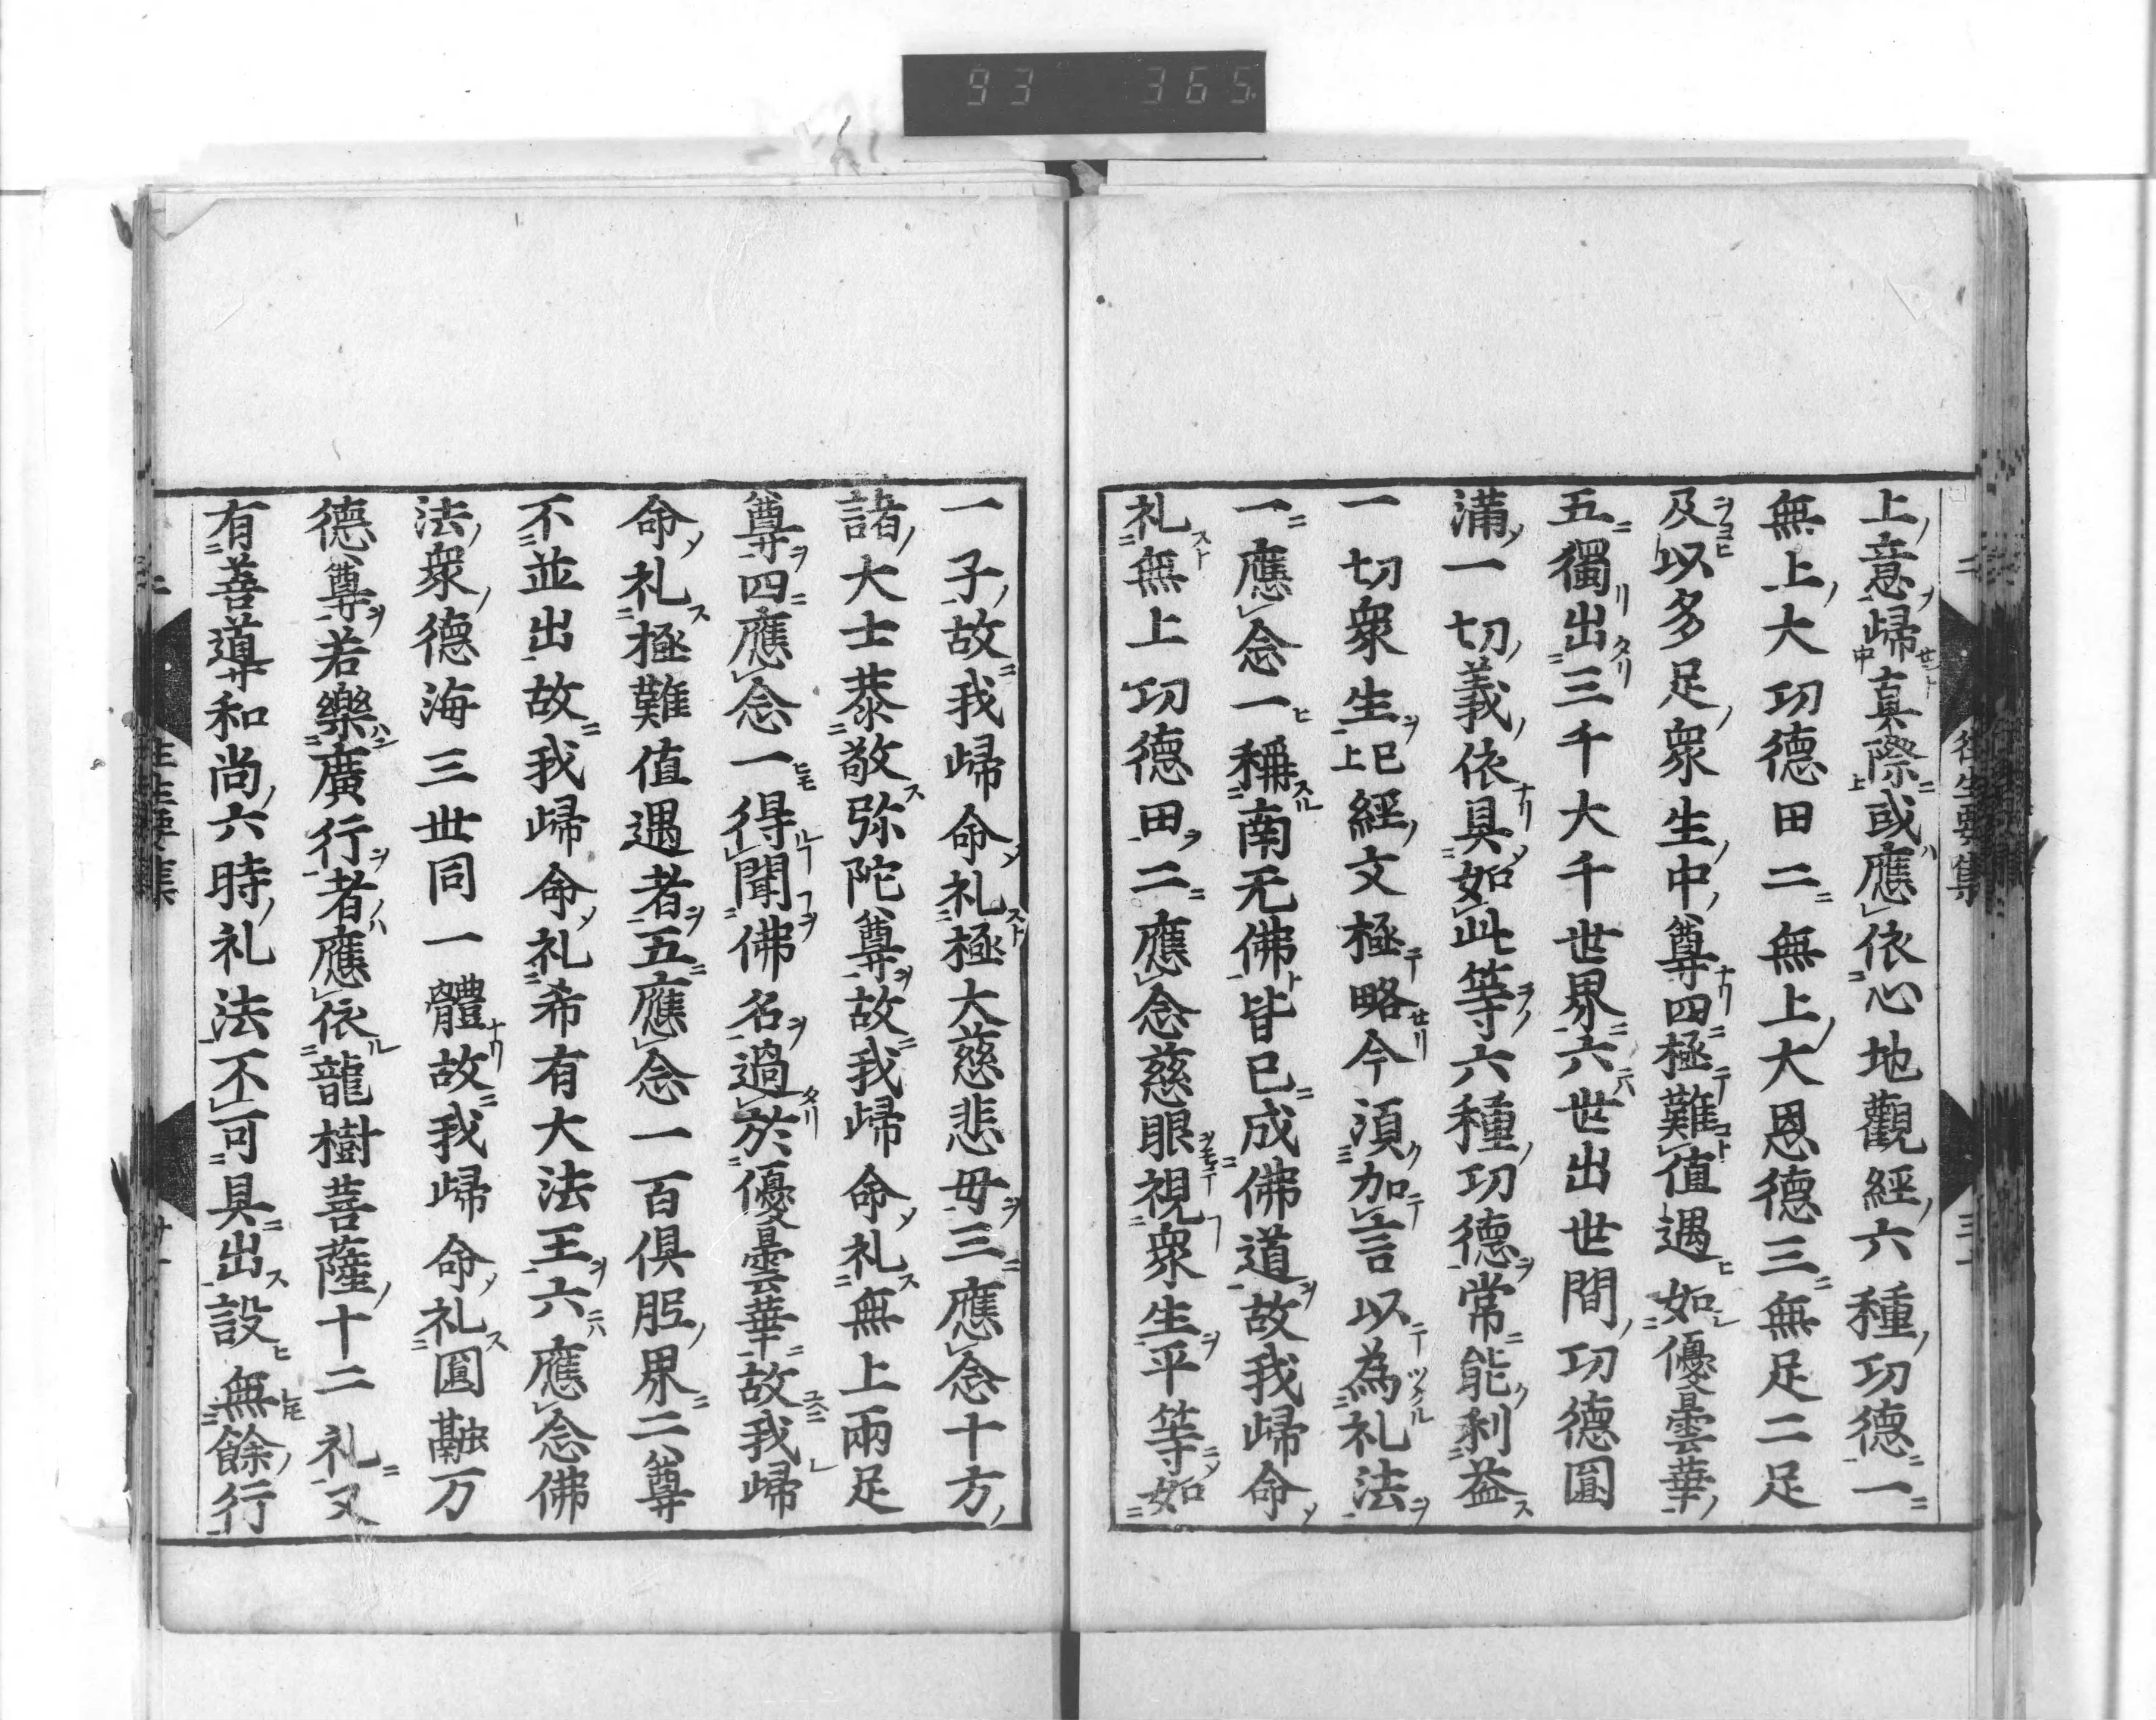 93 365
上意歸真際或應依心地觀經六種功德一
無上大功德田二無上大恩德三無足二足
及以多足衆生中尊四極難値遇如優曇華
五獨出三千大千世界六世出世間功德圓
滿一切義依具如此等六種功德常能利益
一切衆生已上經文極略今須加言以為礼法
一應念一稱南无佛皆已成佛道故我歸命
礼無上功德田二應念慈眼視衆生平等如
一子故我歸命礼極大慈悲母三應念十方
諸大士恭敬弥陀尊故我歸命礼無上兩足
尊四應念一得聞佛名過於優曇華故我歸
命礼極難値遇者五應念一百俱胝界二尊
不並出故我歸命礼希有大法王六應念佛
法衆德海三世同一體故我歸命礼圓融万
德尊若樂廣行者應依龍樹菩薩十二礼又
有善導和尚六時礼法不可具出設無餘行
往生要集